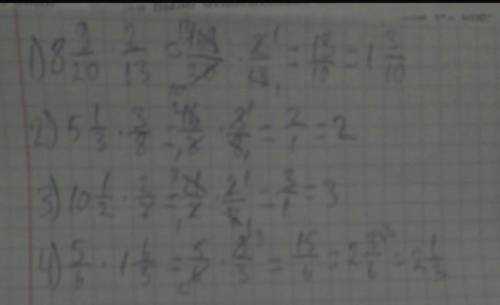 1) 8 9/20 2/13 = 169/20 · 2/13 = 13/10 = 1 3/10
2) 5 1/3 · 3/8 = 16/3 · 3/8 = 2/1 = 2
3) 10 1/2 · 2/7 = 21/2 · 2/7 = 3/1 = 3
4) 5/6 · 1 = 5/6 · = 15/6 = 2 3/6 = 2